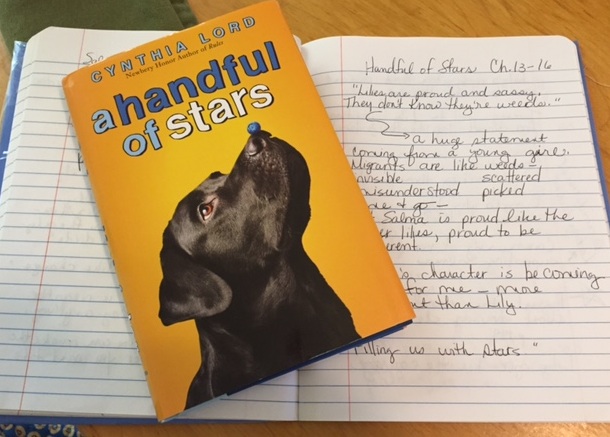 CYNTHIA LORD
Newbery Honor Author of Rules
a handful
of stars
Handful of Stars Ch. 13-16
"Lilies are proud and sassy.
They don't know they're weeds."
a huge statement
coming from a young girl.
Migrants are like weeds-
scattered
misunderstood picked
& go -
Salma is proud like the
lilies, proud to be
character is becoming
for me - more
than Lily.
filling us with stars"